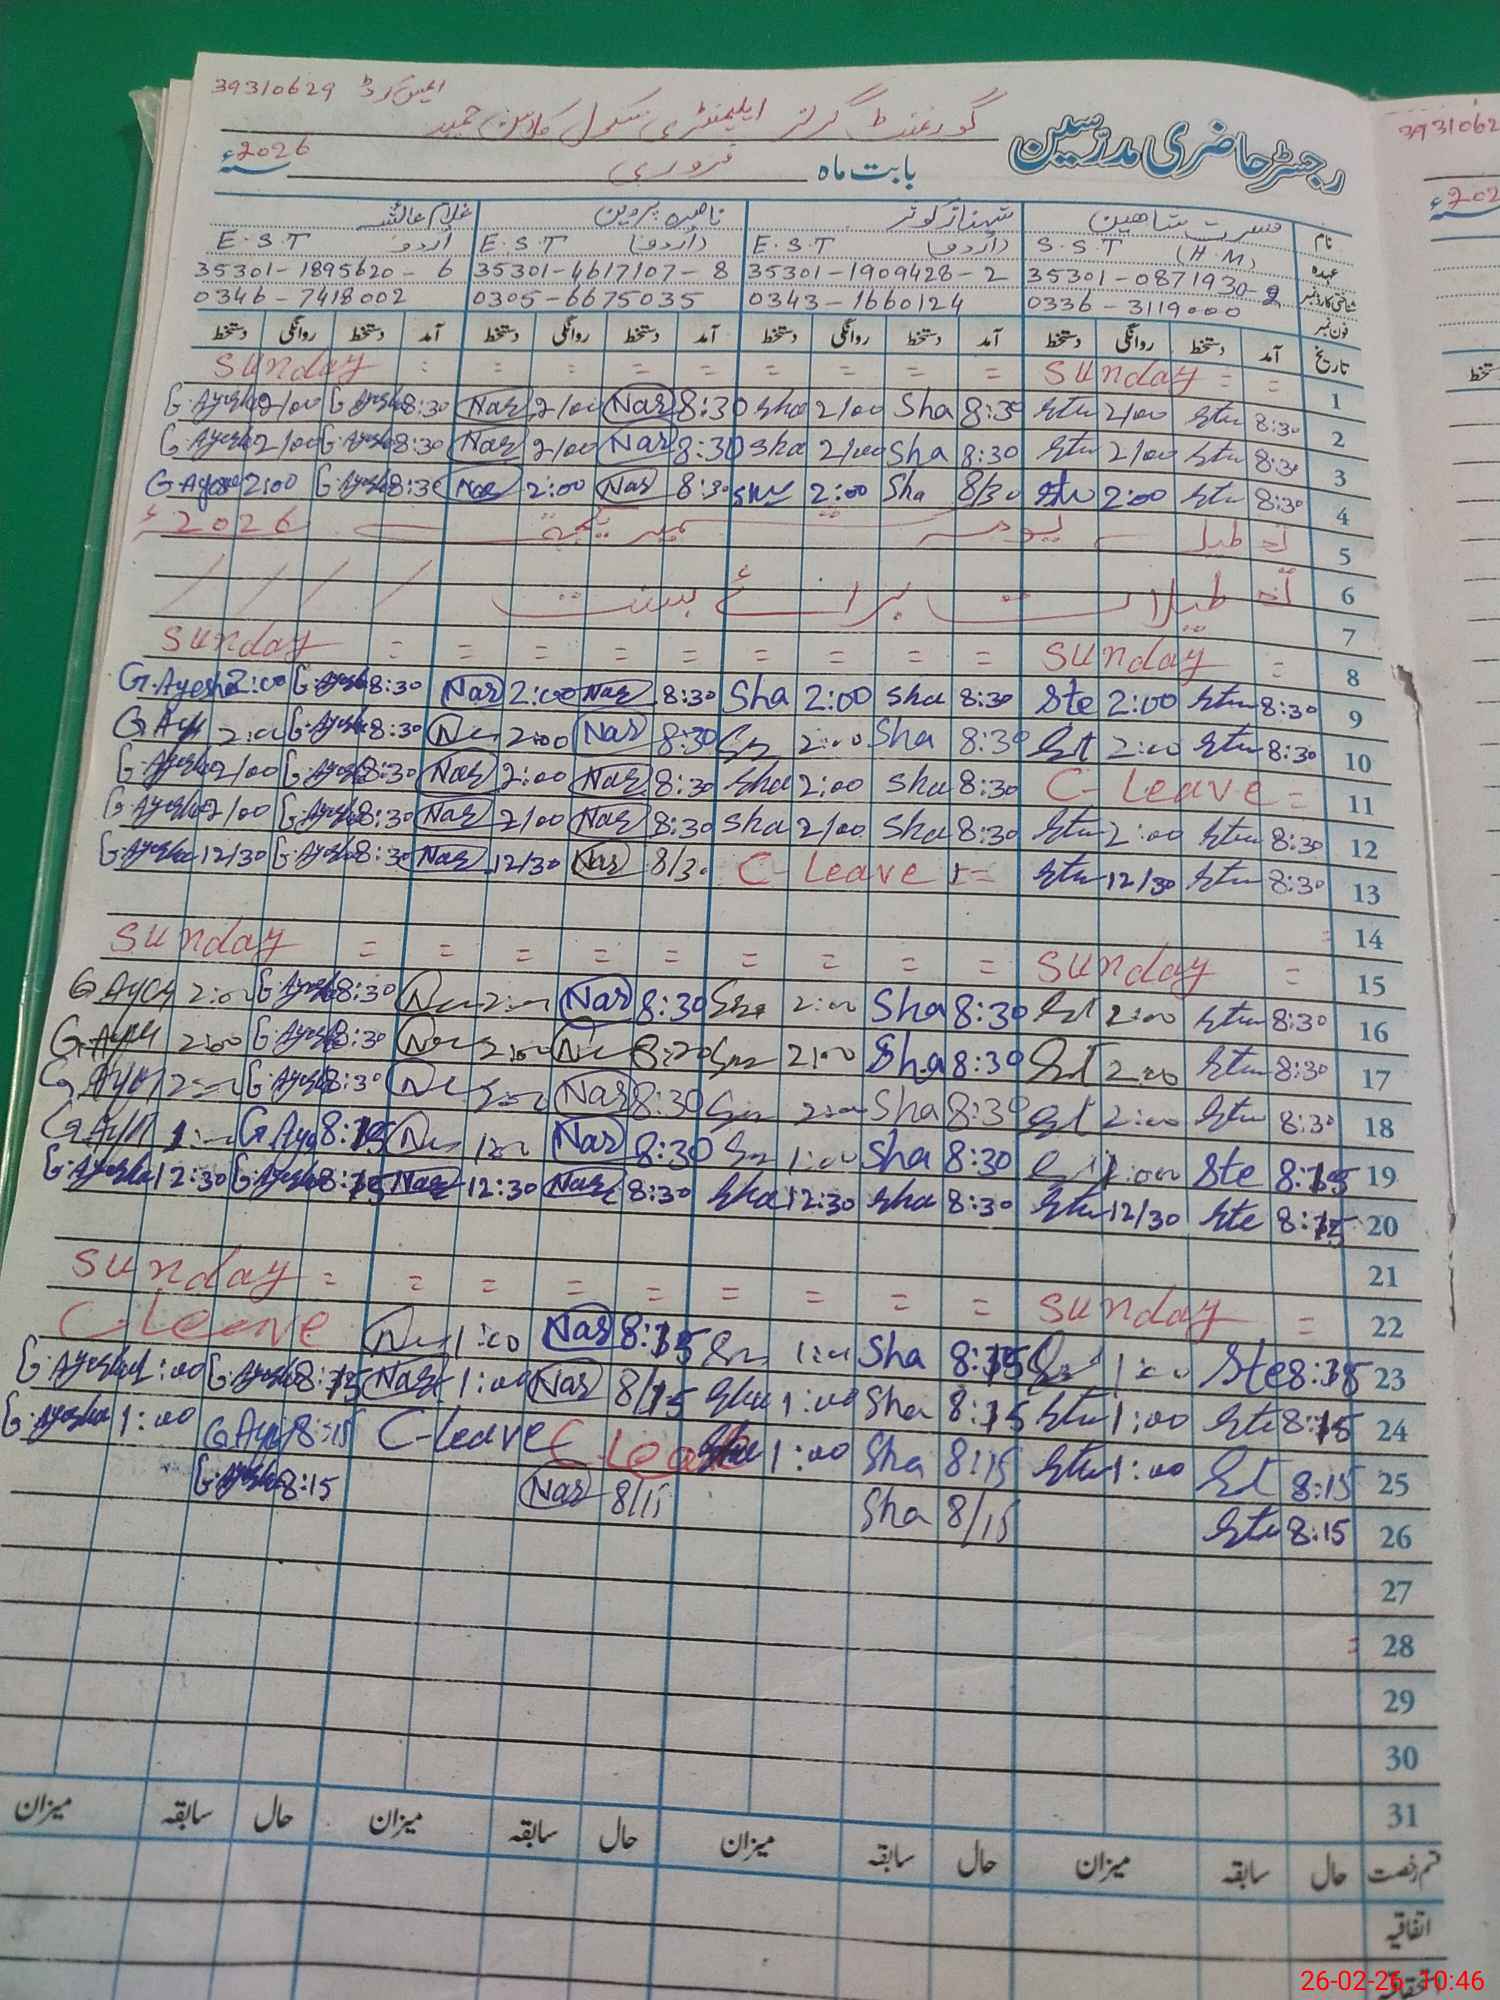 39310629 ایمس کوڈ
گورنمنٹ گرلز ایلیمنٹری سکول
رجسٹر حاضری مدرسین
بابت ماہ فروری سنہ 2026ء
نام مسرت شاہین شہناز کوثر ناھید پروین غلام عائشہ
عہدہ S.S.T (H.M) E.S.T (اردو) E.S.T (اردو) E.S.T اردو
شناختی کارڈ نمبر 35301-0871930-2 35301-1909428-2 35301-4617107-8 35301-1895620-6
فون نمبر 0336-3119000 0343-1660124 0305-6675035 0346-7418002
تاریخ آمد دستخط روانگی دستخط آمد دستخط روانگی دستخط آمد دستخط روانگی دستخط آمد دستخط روانگی دستخط
1 = = Sunday = = = = = = : : Sunday
2 8:30 Stu 2/00 Stu 8:30 Sha 2/00 Sha 8:30 Nas 2/00 Nas 8:30 G.Ayesha 2/00 G.Ayesha
3 8:30 Stu 2/00 Stu 8:30 Sha 2/00 Sha 8:30 Nas 2/00 Nas 8:30 G.Ayesha 2/00 G.Ayesha
4 8:30 Stu 2:00 Stu 8/30 Sha 2:00 8:30 Nas 2:00 Nas 8:30 G.Ayesha 2:00 G.Ayesha
5 تعطیل یوم یکجہتی 2026ء
6 تعطیلات برائے بسنت / / / /
7
8 = Sunday = = = = = = = = Sunday
9 8:30 Stu 2:00 Ste 8:30 Sha 2:00 Sha 8:30 Nas 2:00 Nas 8:30 G.Ayesha 2:00 G.Ayesha
10 8:30 Stu 2:00 St 8:30 Sha 2:00 8:30 Nas 2:00 8:30 G.Ayesha 2:00 G.Ay
11 = C-Leave 8:30 Sha 2:00 Sha 8:30 Nas 2:00 Nas 8:30 G.Ayesha 2/00 G.Ayesha
12 8:30 Stu 2:00 Stu 8:30 Sha 2/00 Sha 8:30 Nas 2/00 Nas 8:30 G.Ayesha 2/00 G.Ayesha
13 8:30 Stu 12/30 Stu C-Leave 8/30 Nas 12/30 Nas 8:30 G.Ayesha 12/30 G.Ayesha
14
15 = Sunday = = = = = = = = Sunday
16 8:30 Stu 2:00 St 8:30 Sha 2:00 Sha 8:30 Nas 2:00 8:30 G.Ayesha 2:00 G Ay
17 8:30 Stu 2:00 St 8:30 Sha 2:00 2:00 8:30 G.Ayesha 2:00 G.Ay
18 8:30 Stu 2:00 St 8:30 Sha 2:00 8:30 Nas 2:00 8:30 G.Ayesha 2:00 G.Ay
19 8:15 Ste 1:00 8:30 Sha 1:00 8:30 Nas 1:00 8:15 G.Ay 1:00 G.Ay
20 8:15 Ste 12/30 Stu 8:30 Sha 12:30 Sha 8:30 Nas 12:30 Nas 8:15 G.Ayesha 12:30 G.Ayesha
21
22 = Sunday = = = = = = = = Sunday
23 8:15 Ste 1:00 8:15 Sha 1:00 8:15 Nas 1:00 C-Leave
24 8:15 Stu 1:00 Stu 8:15 Sha 1:00 Sha 8/15 Nas 1:00 Nas 8:15 G.Ayesha 1:00 G.Ayesha
25 8:15 St 1:00 Stu 8:15 Sha 1:00 C Leave C-Leave 8:15 G.Ay 1:00 G.Ayesha
26 8:15 Stu 8/15 Sha 8/15 Nas 8:15 G.Ayesha
27
28
29
30
31
قسم رخصت حال سابقہ میزان حال سابقہ میزان حال سابقہ میزان حال سابقہ میزان
اتفاقیہ
26-02-26 10:46